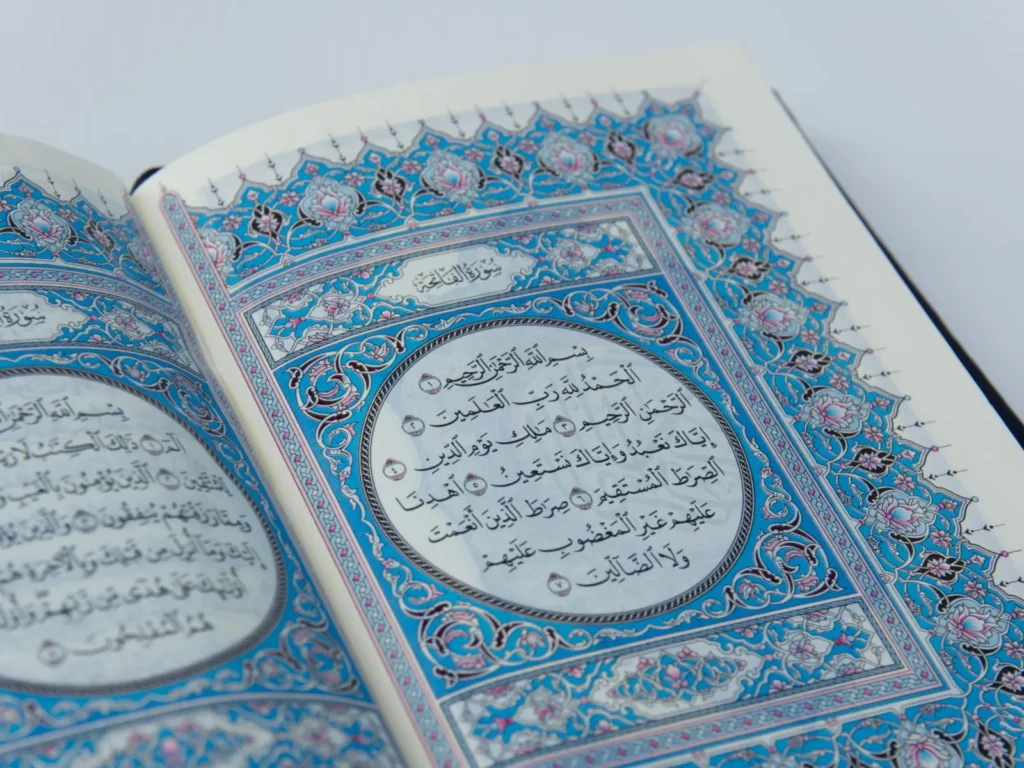 سُورَةُ الفَاتِحَةِ
بِسْمِ ٱللَّهِ ٱلرَّحْمَٰنِ ٱلرَّحِيمِ ١
ٱلْحَمْدُ لِلَّهِ رَبِّ ٱلْعَٰلَمِينَ ٢
ٱلرَّحْمَٰنِ ٱلرَّحِيمِ ٣ مَٰلِكِ يَوْمِ ٱلدِّينِ ٤
إِيَّاكَ نَعْبُدُ وَإِيَّاكَ نَسْتَعِينُ ٥ ٱهْدِنَا
ٱلصِّرَٰطَ ٱلْمُسْتَقِيمَ ٦ صِرَٰطَ ٱلَّذِينَ أَنْعَمْتَ
عَلَيْهِمْ غَيْرِ ٱلْمَغْضُوبِ عَلَيْهِمْ
وَلَا ٱلضَّآلِّينَ ٧
سُورَةُ
بِسْمِ ٱللَّهِ ٱلرَّحْمَٰنِ
الٓمٓ ١ ذَٰلِكَ ٱلْكِتَٰبُ لَا
لِّلْمُتَّقِينَ ٢ ٱلَّذِينَ يُؤْمِنُونَ بِٱلْغَيْبِ
وَمِمَّا رَزَقْنَٰهُمْ يُنفِقُونَ ٣ وَٱلَّذِينَ
إِلَيْكَ وَمَآ أُنزِلَ مِن قَبْلِكَ وَبِٱلْأَخِرَةِ
أُو۟لَٰٓئِكَ عَلَىٰ هُدًى مِّن رَّبِّهِمْ
هُمُ ٱلْمُفْلِحُونَ ٥